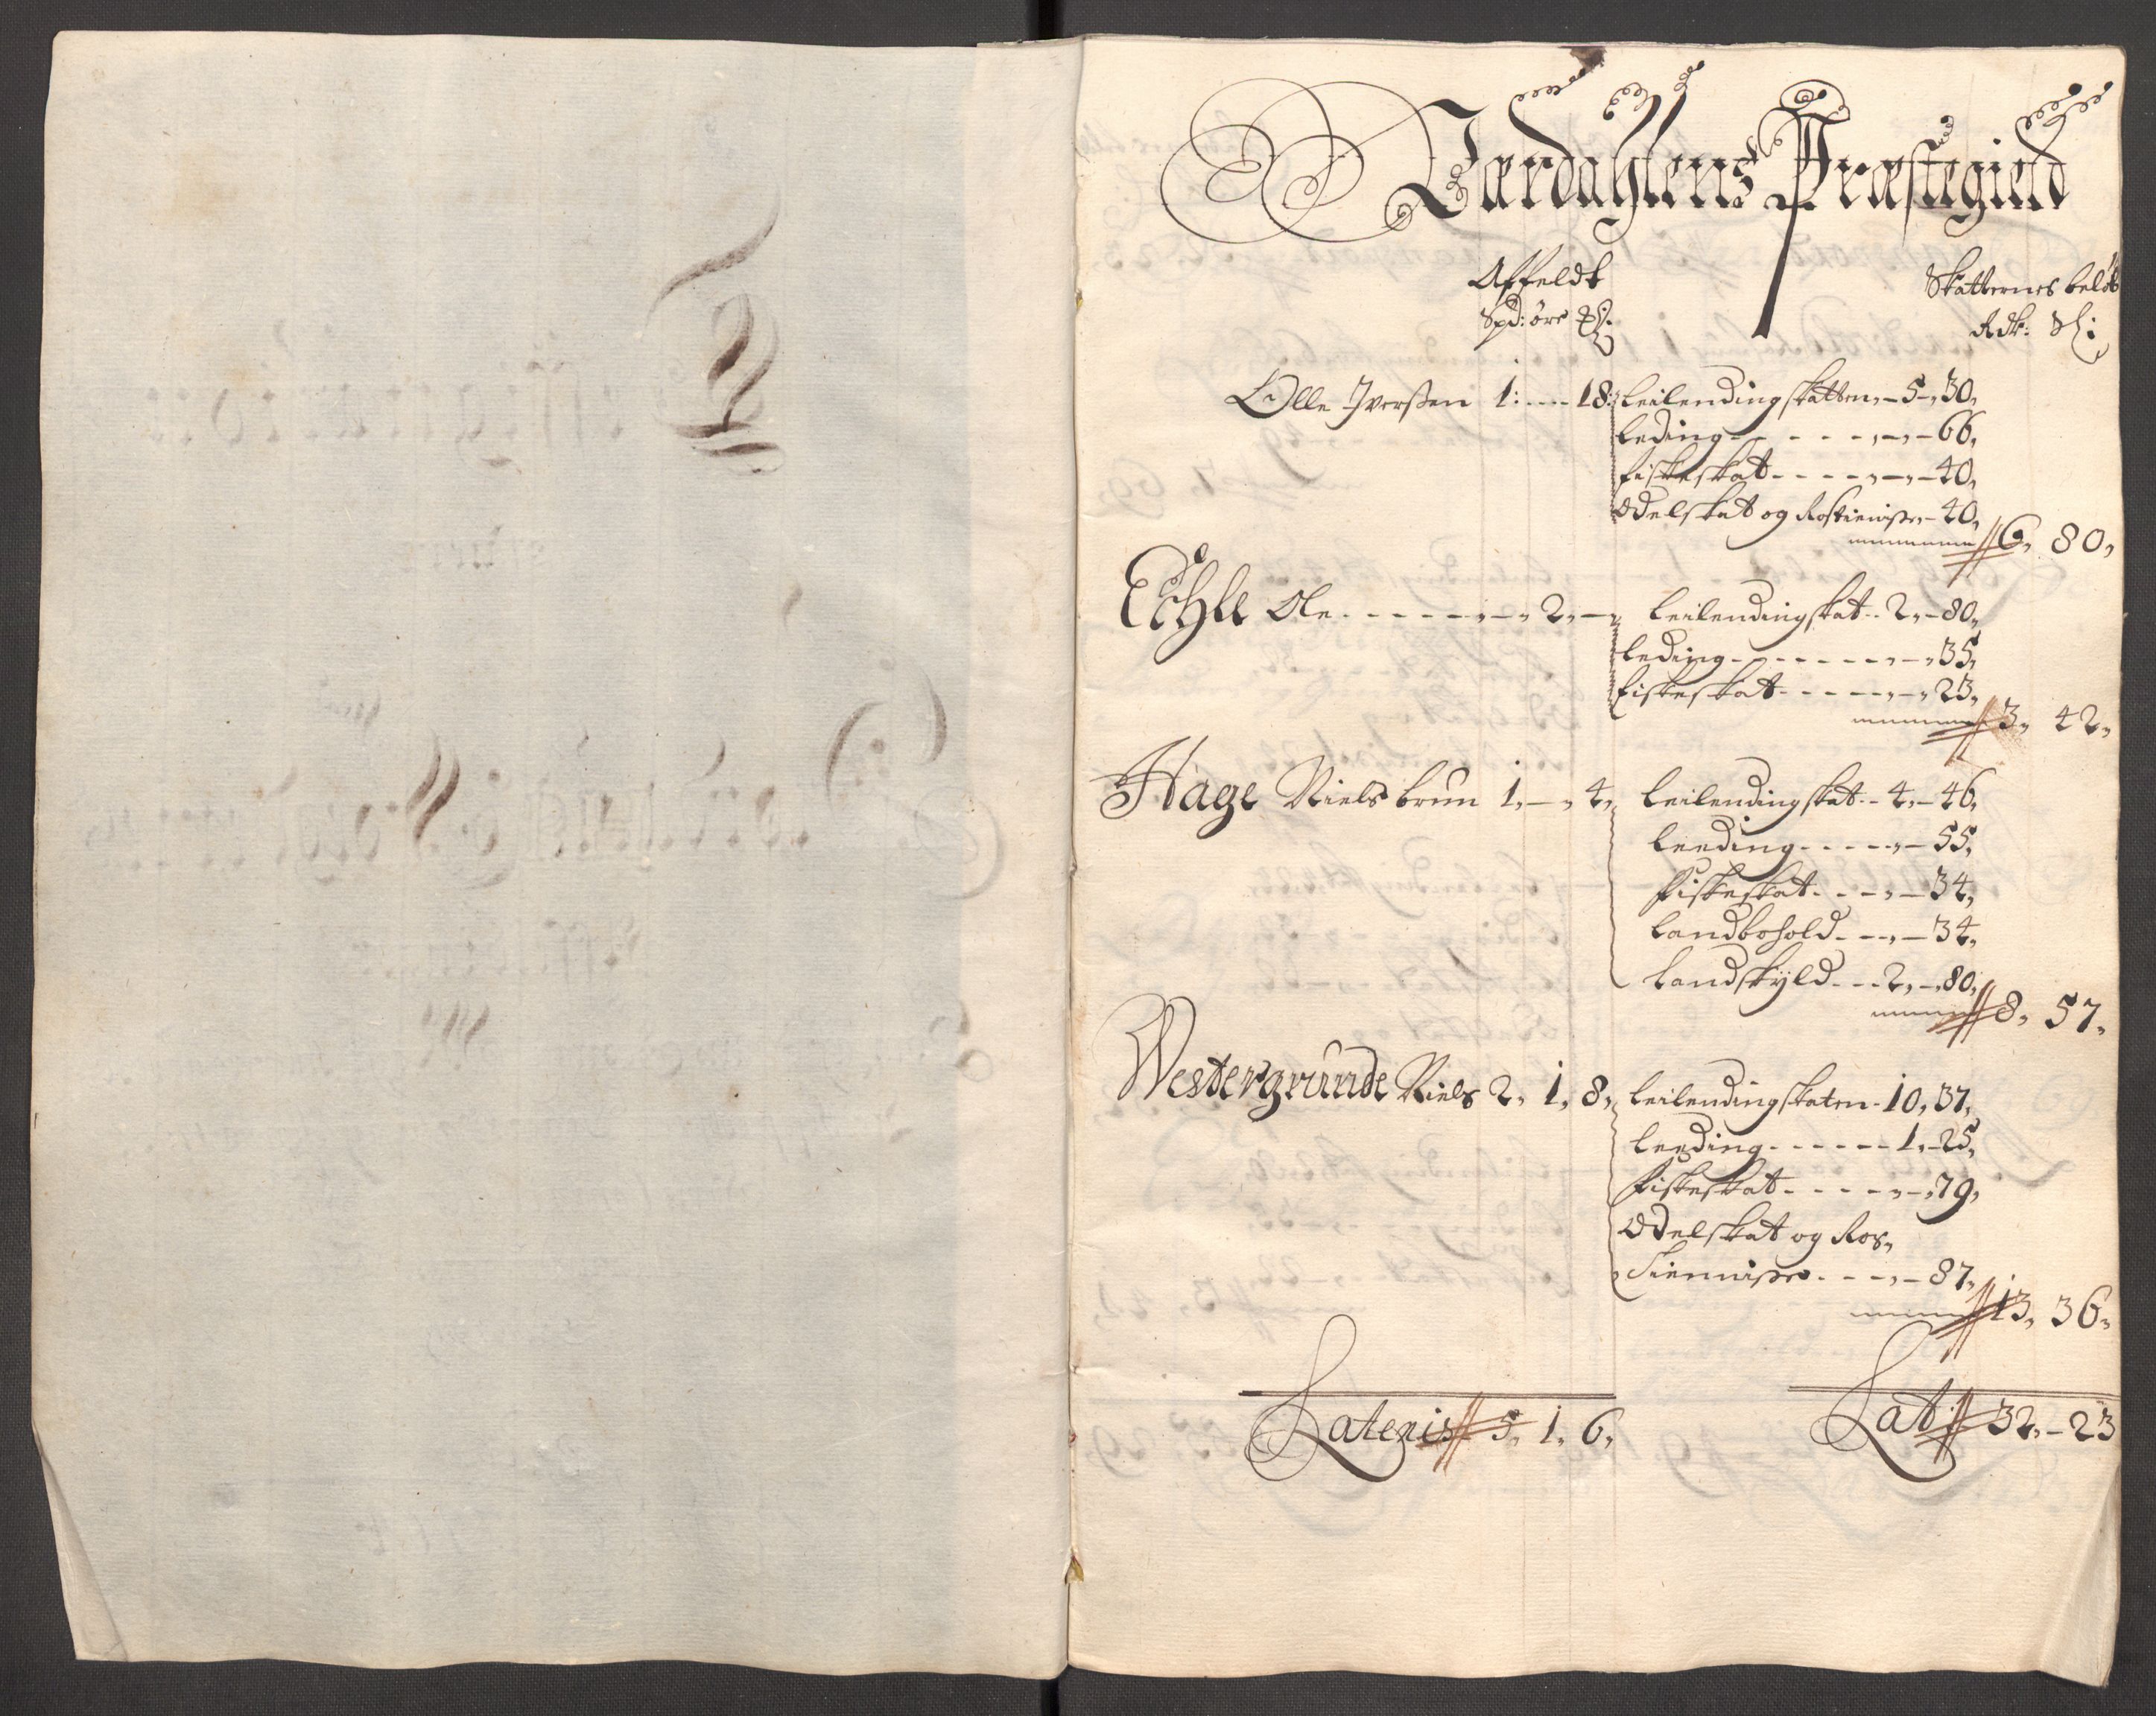 Værdahlens Præstegield
Affeldt
Skatternes beløb
Spd: øre
Rdr: s:
Olle Iverßen 1: 18: Leilendingskatten 5, 30,
Leding 66,
fiskeskat 40,
Odelskat og Rostieniste 40,
6, 80,
Echle Ole 2, Leilendingskat 2, 80,
Leding 35,
fiskeskat 23,
3, 42,
Hage Niels brun 1, 4, Leilendingskat 4, 46,
Leeding 55,
fiskeskat 34,
Landbohold 34,
Landskyld 2, 80,
8, 57,
Westergrunde Niels 2, 1, 8, Leilendingskaten 10, 37,
Leeding 1, 25,
fiskeskat 79,
Odelskat og Ros,
tienniste 87,
13, 36,
Lateris 5, 1, 6,
Lat 32, 23